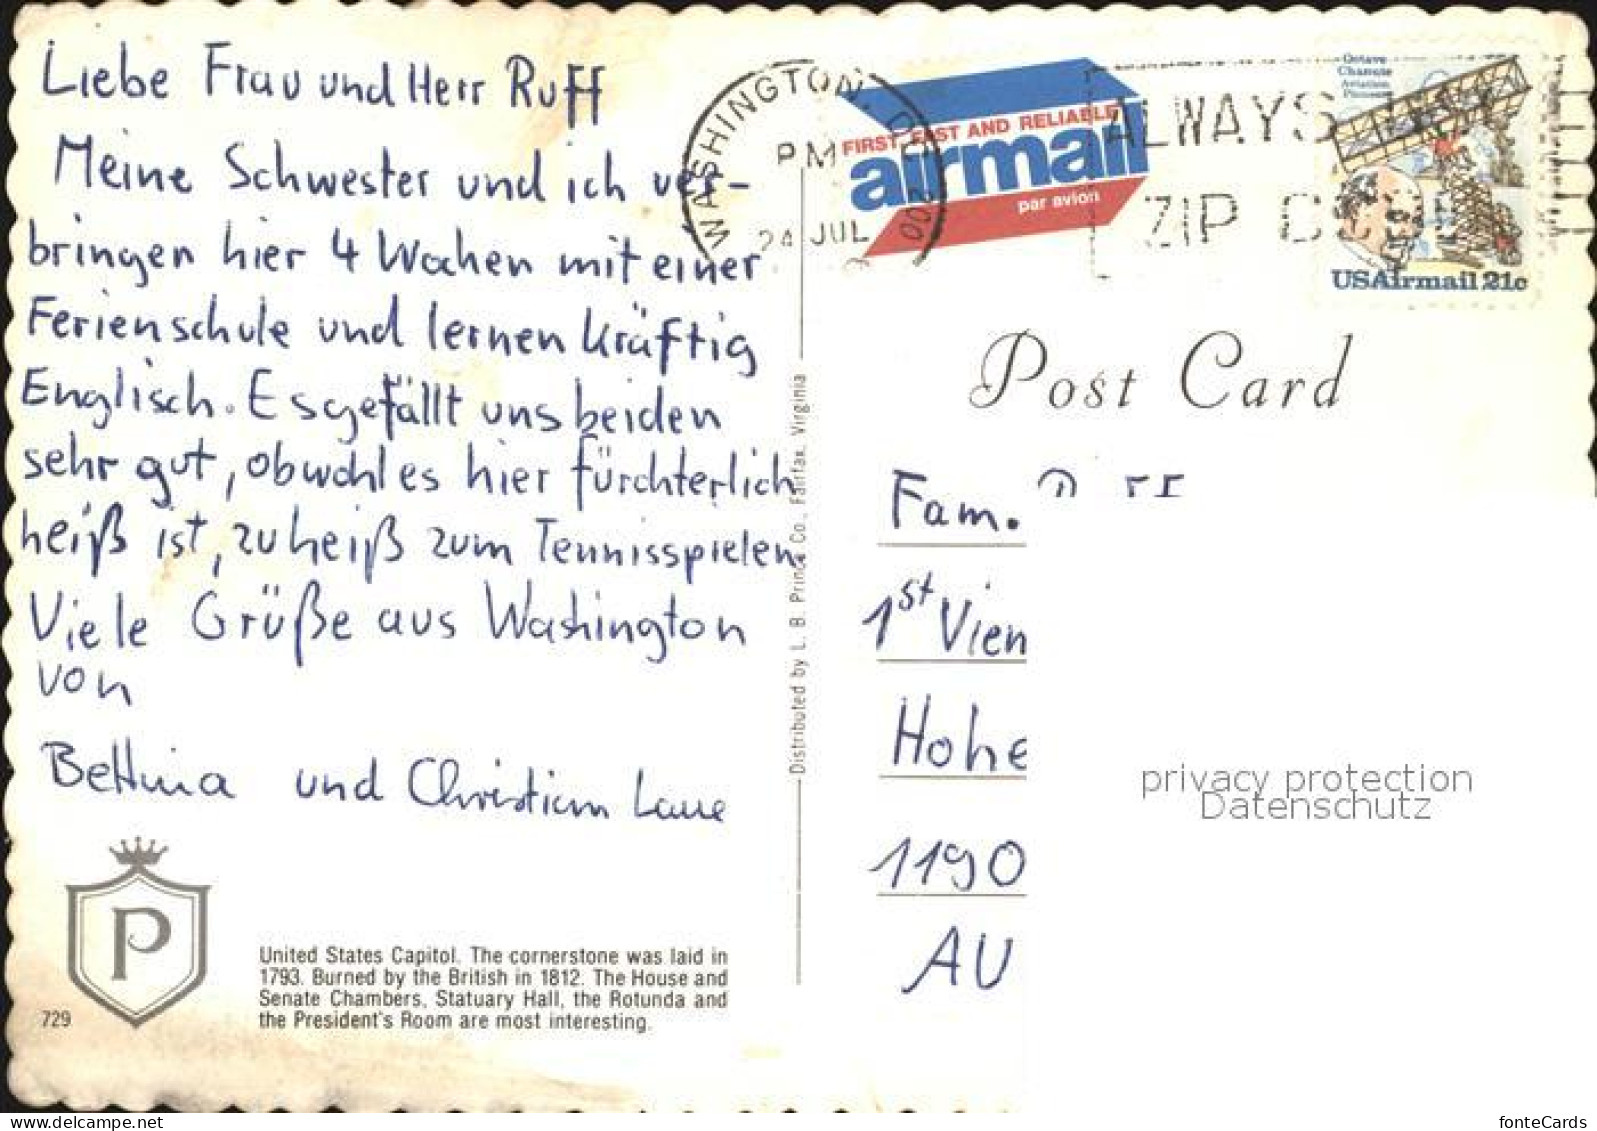 Liebe Frau und Herr Ruff
Meine Schwester und ich ver-
bringen hier 4 Wochen mit einer
Ferienschule und lernen kräftig
Englisch. Es gefällt uns beiden
sehr gut, obwohl es hier fürchterlich
heiß ist, zu heiß zum Tennisspielen.
Viele Grüße aus Washington
von
Bettina und Christian Laue
P
729
United States Capitol. The cornerstone was laid in
1793. Burned by the British in 1812. The House and
Senate Chambers, Statuary Hall, the Rotunda and
the President's Room are most interesting.
Distributed by L. B. Prince Co., Fairfax, Virginia
WASHINGTON, DC
PM
24 JUL
200
FIRST FAST AND RELIABLE
airmail
par avion
ALWAYS
ZIP
Octave
Chanute
Aviation
Pioneer
USAirmail 21c
Post Card
Fam.
1st Vien
Hohe
1190
AU
privacy protection
Datenschutz
delcampe.net
fonteCards